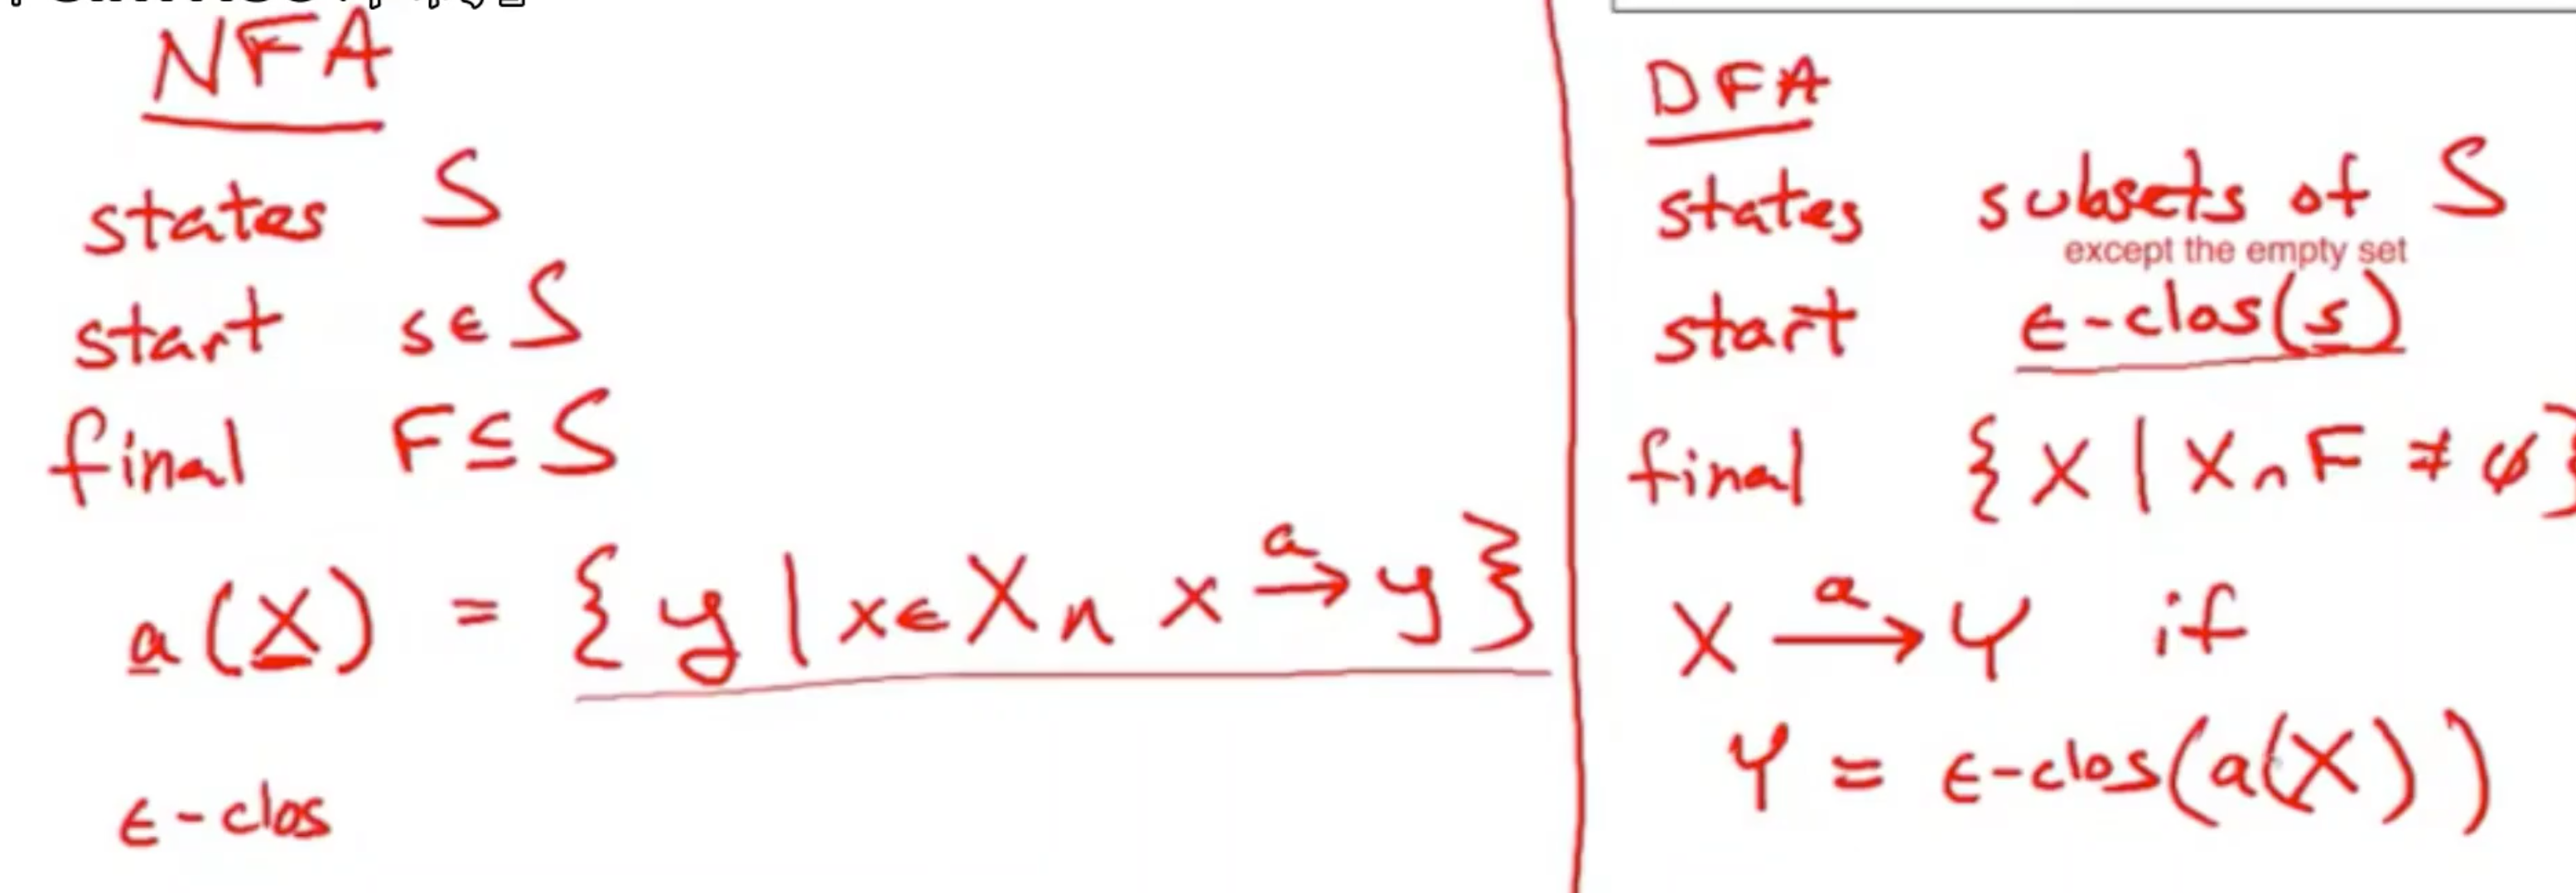 NFA
states S
start s ∈ S
final F ⊆ S
a(X) = { y | x ∈ X ∩ x →ᵃ y }
ε-clos
DFA
states subsets of S
except the empty set
start ε-clos(s)
final { X | X ∩ F ≠ ∅ }
X →ᵃ Y if
Y = ε-clos(a(X))